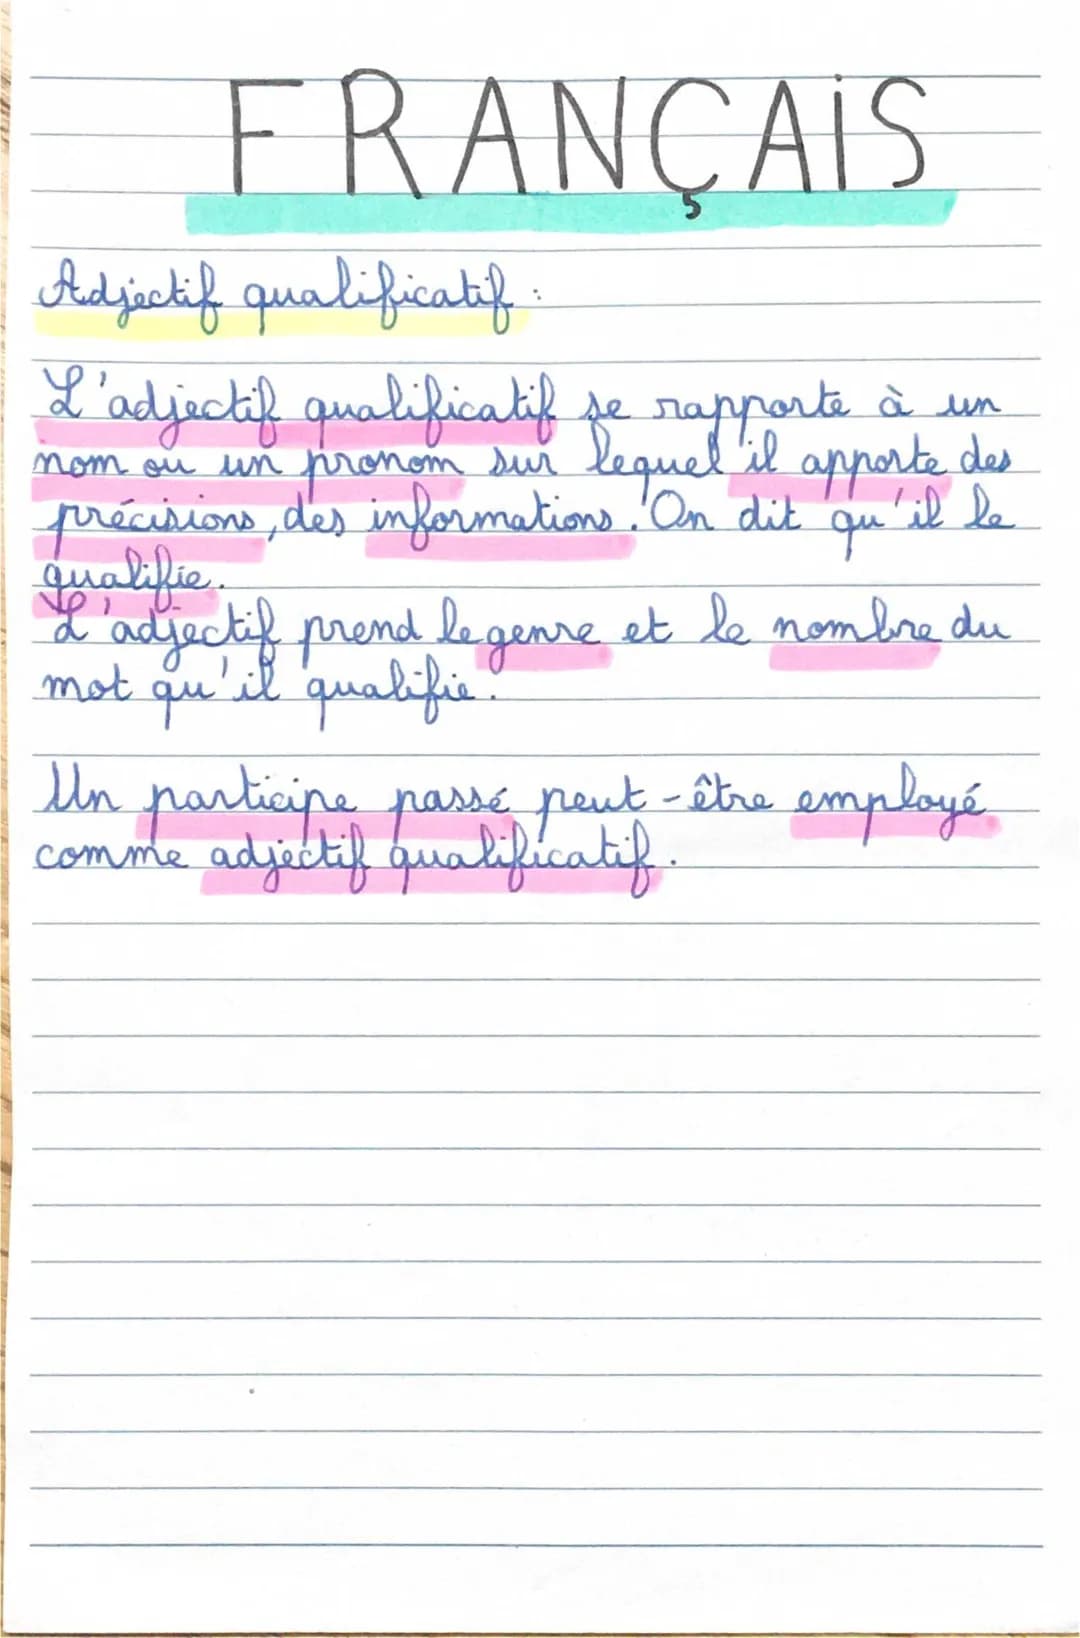 FRANÇAiS
Adjectif qualificatif :
L'adjectif qualificatif se rapporte à un
nom ou un pronom sur lequel il apporte des
précisions, des informations. On dit qu'il le
qualifie.
L'adjectif prend le genre et le nombre du
mot qu'il qualifie.
Un participe passé peut-être employé
comme adjectif qualificatif.